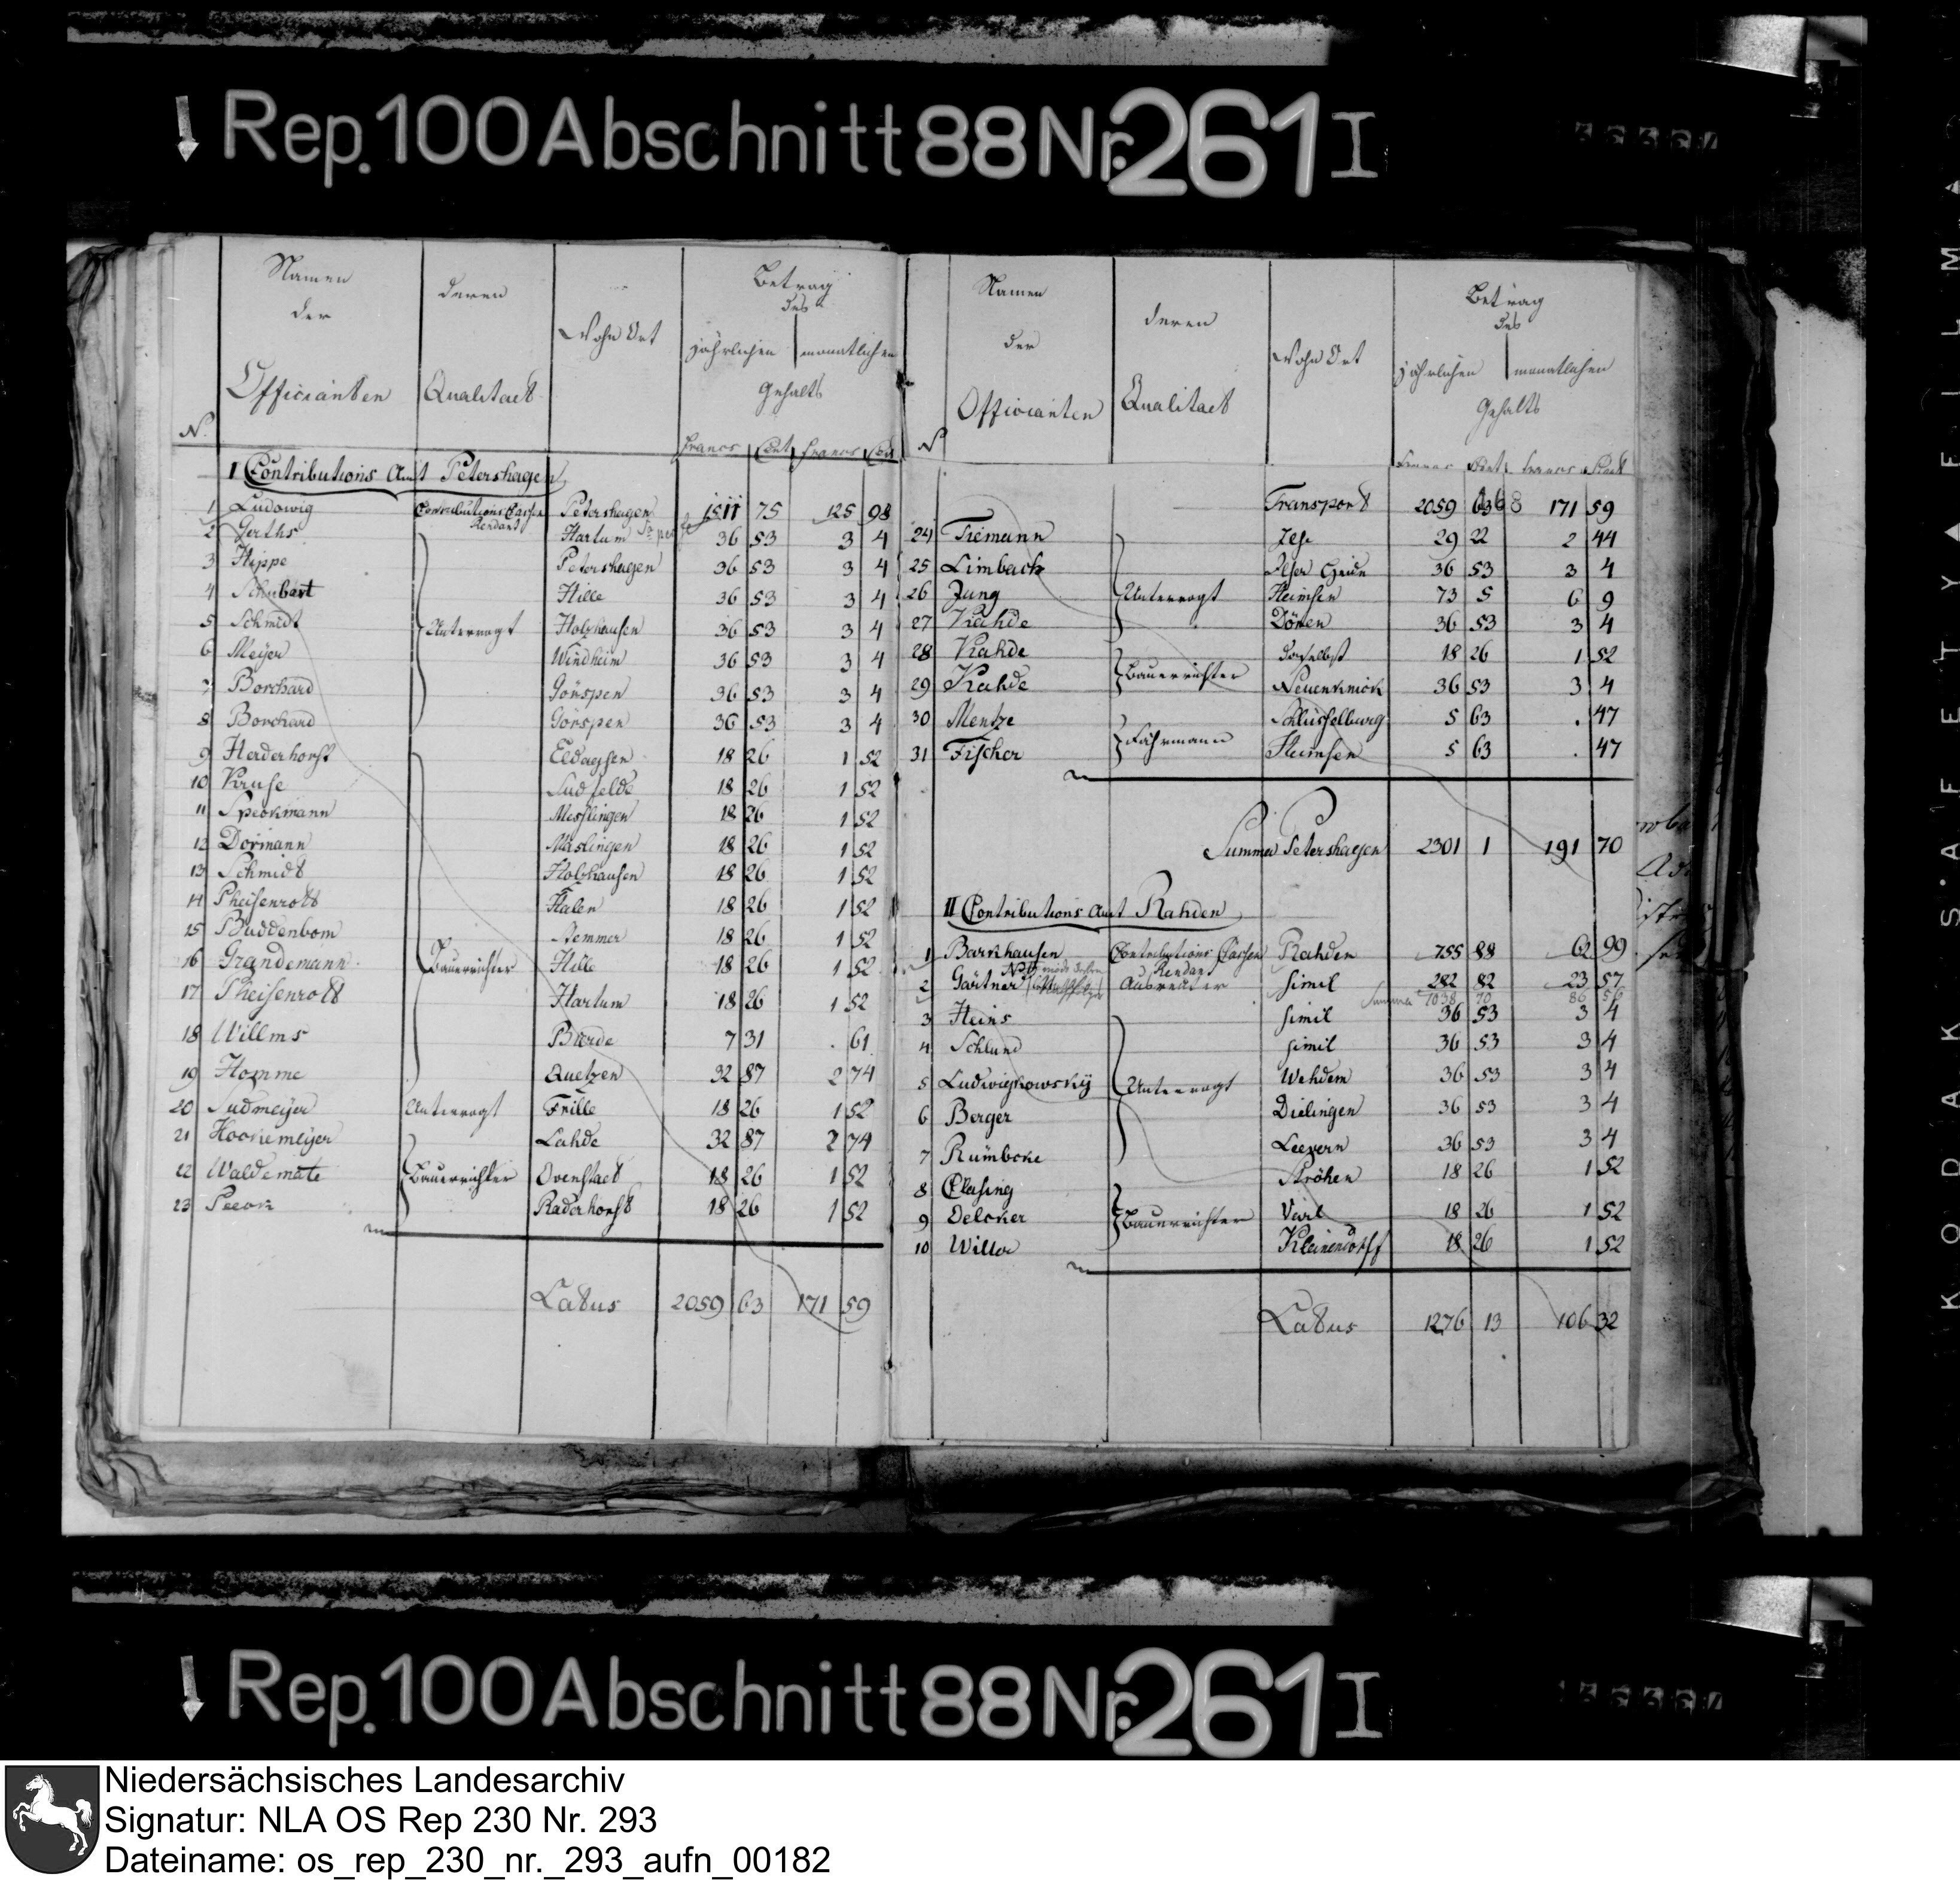 Rep. 100 Abschnitt 88 Nr. 261 I
N. Namen der Officianten deren Qualitaet Wohn Ort Betrag des jährlichen monatlichen Gehalts
francs Cent francs Cent
I Contributions Amt Petershagen
1 Ludowig Contributions Cassen Rendant Petershagen 1511 75 125 98
2 Gerths Hartum 36 53 3 4
3 Hippe Petershagen 36 53 3 4
4 Schubart Hille 36 53 3 4
5 Schmidt Untervogt Holzhausen 36 53 3 4
6 Meyer Windheim 36 53 3 4
7 Borchard Görspen 36 53 3 4
8 Borchard Görspen 36 53 3 4
9 Herderhorst Eldagsen 18 26 1 52
10 Kruse Südfelde 18 26 1 52
11 Speckmann Messlingen 18 26 1 52
12 Dörmann Maslingen 18 26 1 52
13 Schmidt Holzhausen 18 26 1 52
14 Pheisenrott Halen 18 26 1 52
15 Buddenbom Stemmer 18 26 1 52
16 Grandemann Bauerrichter Hille 18 26 1 52
17 Pheisenrott Hartum 18 26 1 52
18 Willms Bierde 7 31 . 61
19 Homme Quetzen 32 87 2 74
20 Sudmeyer Untervogt Frille 18 26 1 52
21 Hookemeyer Lahde 32 87 2 74
22 Waldemate Bauerrichter Ovenstaedt 18 26 1 52
23 Peeck Raderhorst 18 26 1 52
Latus 2059 63 171 59
N. Namen der Officianten deren Qualitaet Wohn Ort Betrag des jährlichen monatlichen Gehalts
francs Cent francs Cent
Transport 2059 63 171 59
24 Tiemann 29 22 2 44
25 Limbach 36 53 3 4
26 Jung Untervogt Heimsen 73 5 6 9
27 Kahde Dören 36 53 3 4
28 Kahde daselbst 18 26 1 52
29 Kahde Bauerrichter Neuenknick 36 53 3 4
30 Mentze Schlüsselburg 5 63 . 47
31 Fischer Fährmann Heimsen 5 63 . 47
Summa Petershagen 2301 1 191 70
II Contributions Amt Rahden
1 Barkhausen Contributions Cassen Rendant Rahden 755 88 62 99
2 Gärtner Ausreuter simil 282 82 23 57
Summa 1038 70 86 56
3 Heins simil 36 53 3 4
4 Schlund simil 36 53 3 4
5 Ludwighowsky Untervogt Wehdem 36 53 3 4
6 Berger Dielingen 36 53 3 4
7 Rümbcke Leevern 36 53 3 4
8 Clasing Ströhen 18 26 1 52
9 Oelcker Bauerrichter Varl 18 26 1 52
10 Willer Kleinendorff 18 26 1 52
Latus 1276 13 106 32
KODAK·SAFETY▲FILM▲
Rep. 100 Abschnitt 88 Nr. 261 I
Niedersächsisches Landesarchiv
Signatur: NLA OS Rep 230 Nr. 293
Dateiname: os_rep_230_nr._293_aufn_00182